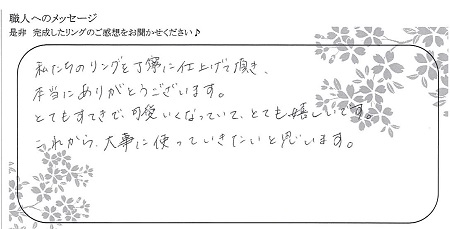 職人へのメッセージ
是非 完成したリングのご感想をお聞かせください♪
私たちのリングを丁寧に仕上げて頂き、
本当にありがとうございます。
とてもすてきで、可愛いくなっていて、とても嬉しいです。
これから、大事に使っていきたいと思います。